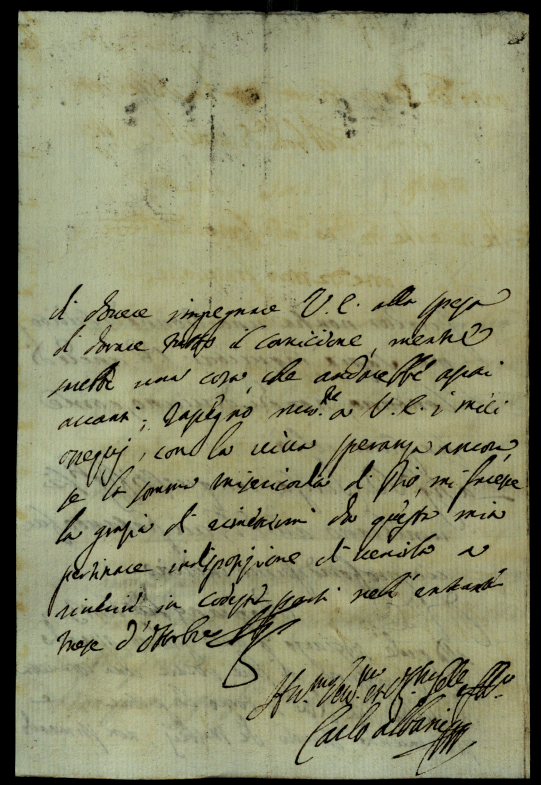 di dovere impegnare V. E. alla spesa
di dorare tutto il cornicione, mentre
sarebbe una cosa, che andarebbe assai
avanti; rassegno a V. E. i miei
ossequj, con la viva speranza ancora
se la somma misericordia di Dio, mi facesse
la grazia di rimettermi da questa mia
pertinace indisposizione di venirla a
riverire in coteste parti nell'entrante
mese d'ottobre
Carlo Albani